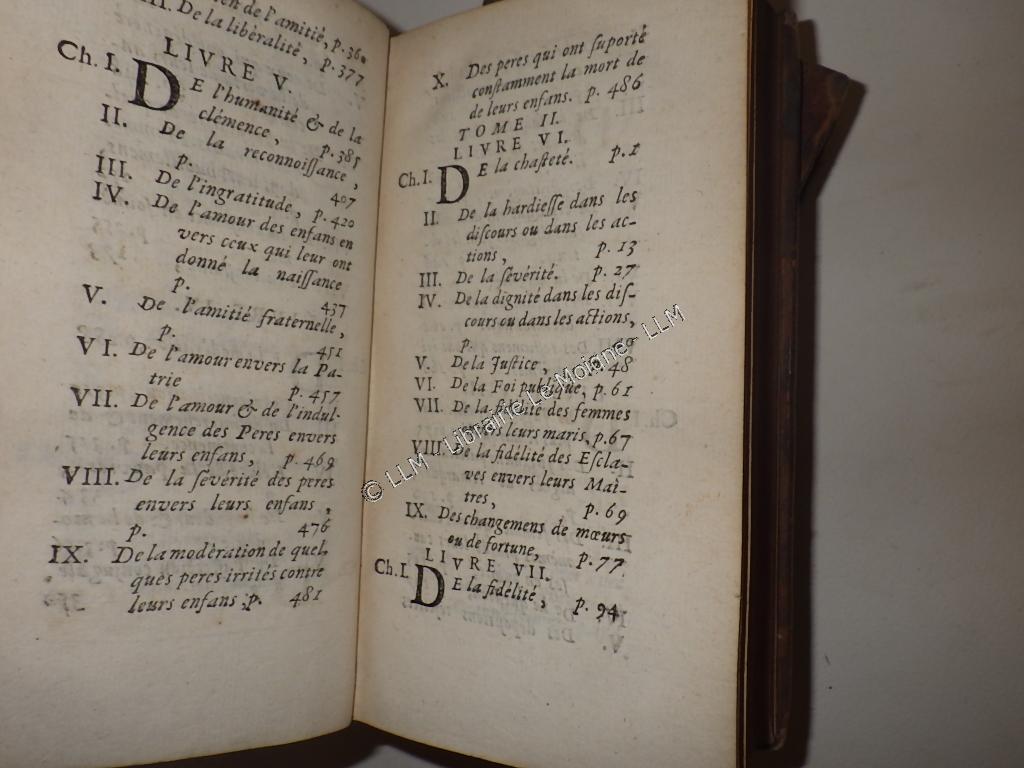 en de l'amitié, p. 360
II. De la libéralité, p. 377
LIVRE V.
Ch. I. DE l'humanité & de la
clémence, p. 385
II. De la reconnoiſſance,
p. 407
III. De l'ingratitude, p. 420
IV. De l'amour des enfans en
vers ceux qui leur ont
donné la naiſſance
p. 437
V. De l'amitié fraternelle,
p. 451
VI. De l'amour envers la Pa-
trie p. 457
VII. De l'amour & de l'indul-
gence des Peres envers
leurs enfans, p. 469
VIII. De la ſévérité des peres
envers leurs enfans,
p. 476
IX. De la modération de quel-
ques peres irrités contre
leurs enfans, p. 481
X. Des peres qui ont ſuporté
conſtamment la mort de
de leurs enfans. p. 486
TOME II.
LIVRE VI.
Ch. I. DE la chaſteté. p. 1
II. De la hardieſſe dans les
diſcours ou dans les ac-
tions, p. 13
III. De la ſévérité. p. 27
IV. De la dignité dans les diſ-
cours ou dans les actions,
p.
V. De la Juſtice, 48
VI. De la Foi publique, p. 61
VII. De la fidélité des femmes
envers leurs maris, p. 67
VIII. De la fidélité des Eſcla-
ves envers leurs Maî-
tres, p. 69
IX. Des changemens de mœurs
ou de fortune, p. 77
LIVRE VII.
Ch. I. DE la fidélité, p. 94
© LLM Librairie Le Moigne - LLM